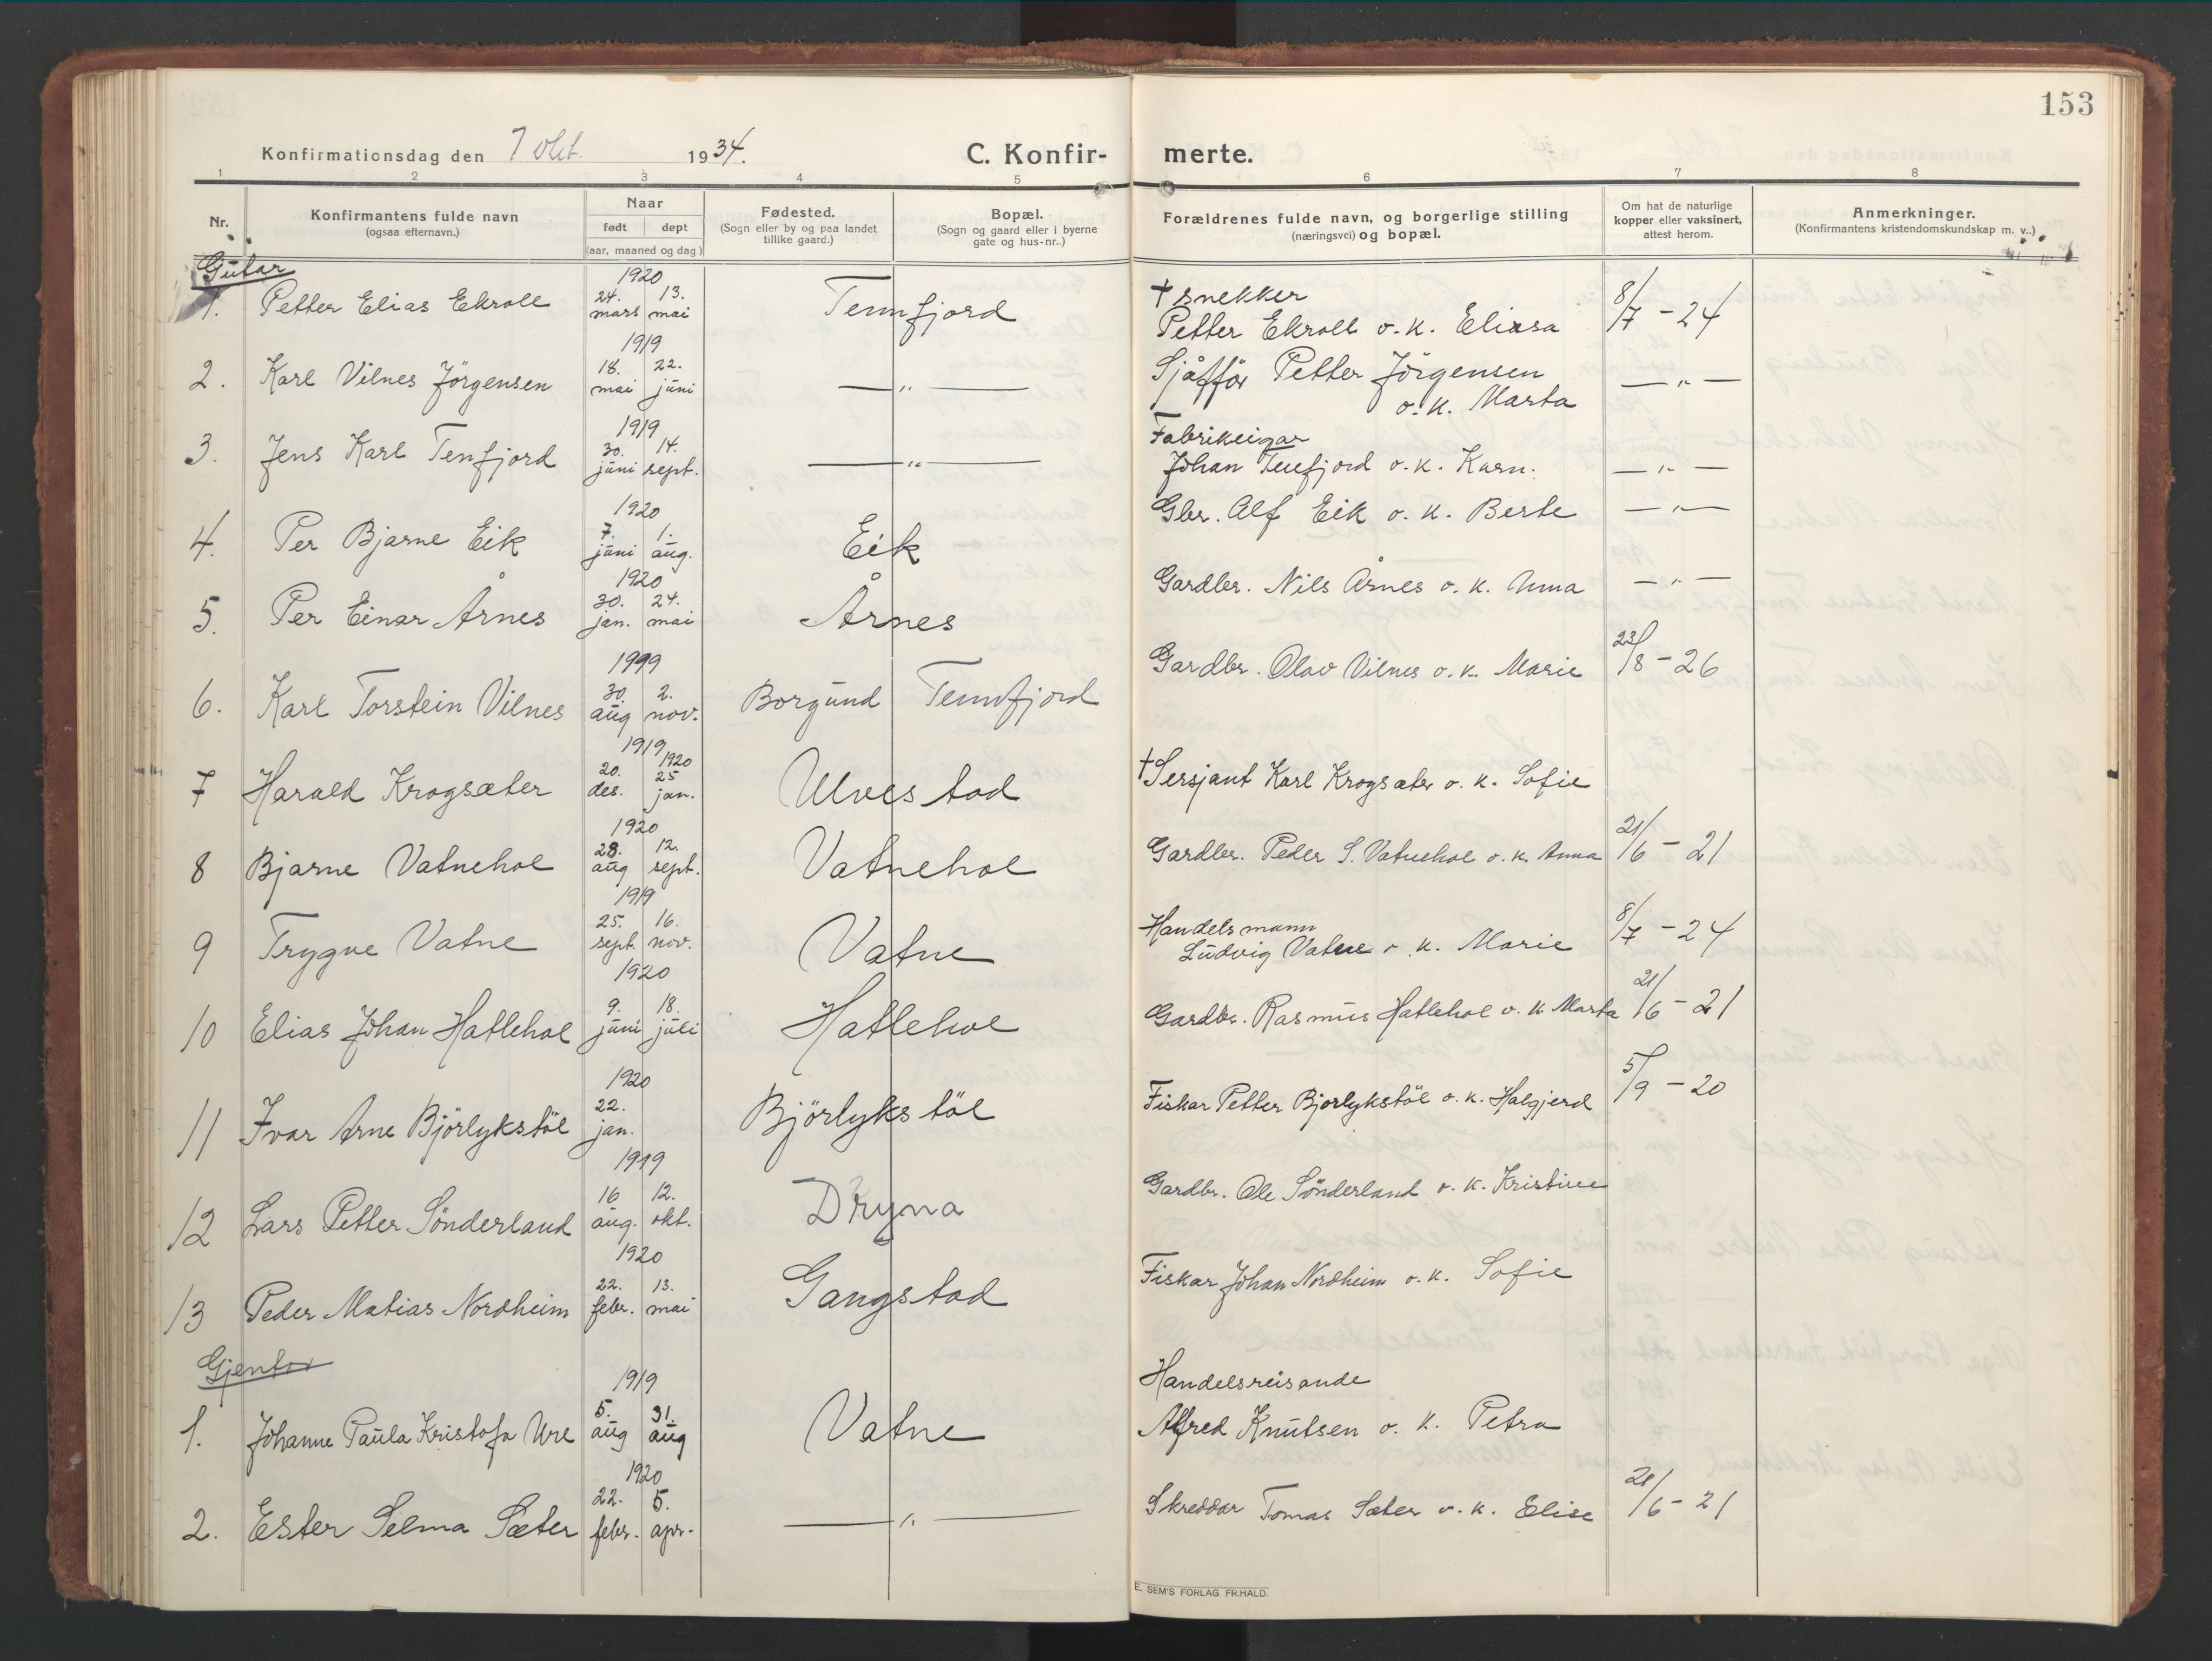 153
Konfirmationsdag den 7 okt. 1934.
C. Konfir-merte.
1 2 3 4 5 6 7 8
Nr.
Konfirmantens fulde navn
(ogsaa efternavn.)
Naar
født døpt
(aar, maaned og dag)
Fødested.
(Sogn eller by og paa landet
tillike gaard.)
Bopæl.
(Sogn og gaard eller i byerne
gate og hus-nr..)
Forældrenes fulde navn, og borgerlige stilling
(næringsvei) og bopæl.
Om hat de naturlige
kopper eller vaksinert,
attest herom.
Anmerkninger.
(Konfirmantens kristendomskundskap m. v..)
Gutar
1920
† snekker
1. Petter Elias Ekroll 24. mars 13. mai Tennfjord Petter Ekroll o. k. Eliasa 8/7 - 24
1919
2. Karl Vilnes Jörgensen 18. mai 22. juni — " — Sjåffør Petter Jörgensen
o. k. Marta — " —
1919
Fabrikeigar
3. Jens Karl Tenfjord 30. juni 14. sept. — " — Johan Tenfjord o. k. Karn. — " —
1920
4. Per Bjarne Eik 7. juni 1. aug. Eik Gbr. Alf Eik o. k. Berte — " —
1920
5. Per Einar Årnes 30. jan. 24. mai Årnes Gardbr. Nils Årnes o. k. Anna — " —
1919
6. Karl Torstein Vilnes 30. aug 2. nov. Borgund Tennfjord Gardbr. Olav Vilnes o. k. Marie 23/8 - 26
1919 1920
7 Harald Krogsæter 20. des. 25 jan. Ulvestad † Sersjant Karl Krogsæter o. k. Sofie
1920
8 Bjarne Vatnehol 28. aug 12. sept. Vatnehol Gardbr. Peder S. Vatnehol o. k. Anna 21/6 - 21
1919
Handelsmann
9 Trygve Vatne 25. sept. 16. nov. Vatne Ludvig Vatne o. k. Marie 8/7 - 24
1920
10 Elias Johan Hatlehol 9. juni 18. juli Hatlehol Gardbr. Rasmus Hatlehol o. k. Marta 21/6 - 21
1920
11 Ivar Arne Björlykstöl 22. jan. Björlykstöl Fiskar Petter Bjorlykstöl o. k. Halgjerd 5/9 - 20
1919
12 Lars Petter Sönderland 16 aug. 12. okt. Dryna Gardbr. Ole Sönderland o. k. Kristine
1920
13 Peder Matias Nordheim 22. febr. 13. mai Gangstad Fiskar Johan Nordheim o. k. Sofie
Gjentor
1919
Handelsreisande
1. Johanne Paula Kristofa Ure 5. aug 31. aug Vatne Alfred Knutsen o. k. Petra
1920
2. Ester Selma Sæter 22. febr. 5. apr. — " — Skreddar Tomas Sæter o. k. Elise 21/6 - 21
E. SEM'S FORLAG FR.HALD.